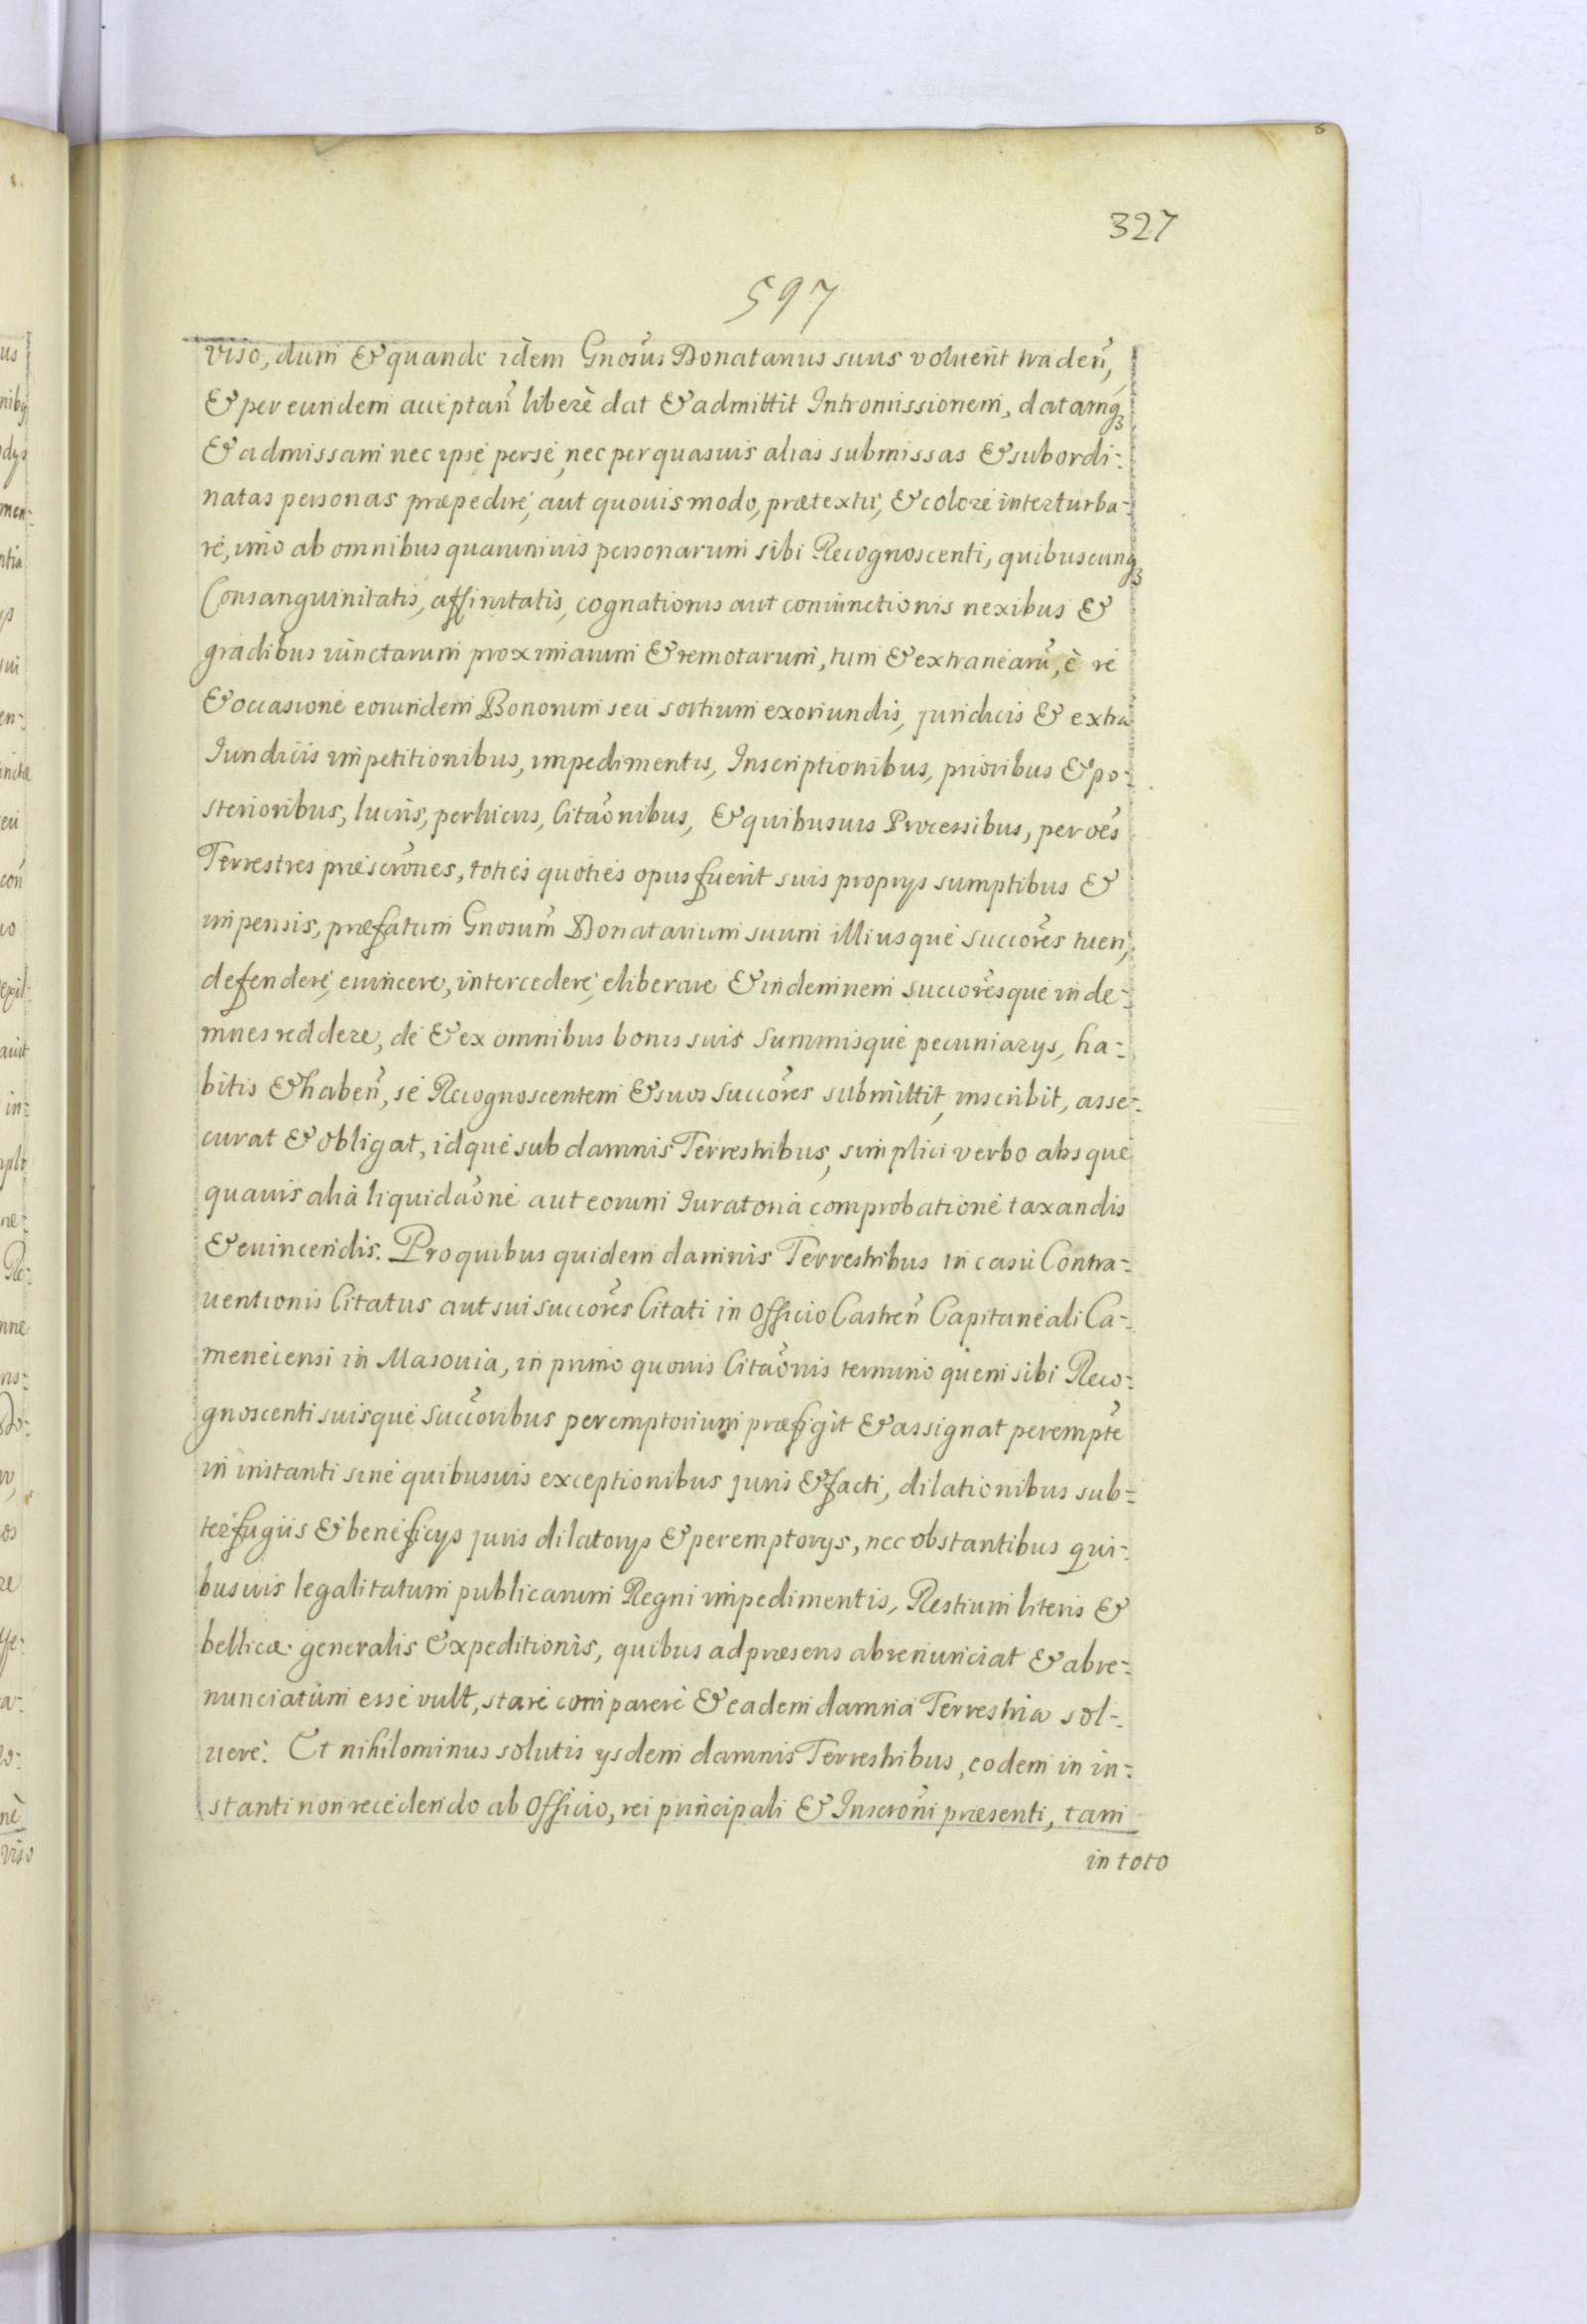 327
597
viso, dum & quando idem Gnosus Donatarius suus voluerit traden̄,
& per eundem acceptan̄ liberè dat & admittit Intromissionem, datamq₃
& admissam nec ipse per se, nec per quasuis alias submissas & subordi-
natas personas præpedire, aut quouis modo, prætextu, & colore interturba-
re, imo ab omnibus quarumuis personarum sibi Recognoscenti, quibuscunq₃
Consanguinitatis, affinitatis, cognationis aut coniunctionis nexibus &
gradibus iunctarum proximarum & remotarum, tum & extranearū, è re
& occasione eorundem Bonorum seu sortium exoriundis, juridicis & extra
Iuridicis impetitionibus, impedimentis, Inscriptionibus, prioribus & po-
sterioribus, lucris, perlucris, Citaōnibus, & quibusuis Processibus, per oēs
Terrestres præscrōnes, toties quoties opus fuerit suis proprys sumptibus &
impensis, præfatum Gnosum Donatarium suum illiusque succōres tueri,
defendere, euincere, intercedere, eliberare & indemnem succōresque inde-
mnes reddere, de & ex omnibus bonis suis summisque pecuniarys, ha-
bitis & haben̄, se Recognoscentem & suos succōres submittit, inscribit, asse-
curat & obligat, idque sub damnis Terrestribus, simplici verbo absque
quauis alià liquidaōne aut eorum Iuratoria comprobatione taxandis
& euincendis. Pro quibus quidem damnis Terrestribus in casu Contra-
uentionis Citatus aut sui succōres Citati in Officio Castren̄ Capitaneali Ca-
menecensi in Masouia, in primo quouis Citaōnis termino quem sibi Reco-
gnoscenti suisque succōribus peremptorium præfigit & assignat perempt̄e
in instanti sine quibusuis exceptionibus juris & facti, dilationibus sub-
terfugiis & beneficys juris dilatorys & peremptorys, nec obstantibus qui-
busuis legalitatum publicarum Regni impedimentis, Restium literis &
bellicæ generalis Expeditionis, quibus ad præsens abrenunciat & abre-
nunciatum esse vult, stare comparere & eadem damna Terrestria sol-
uere. Et nihilominus solutis ysdem damnis Terrestribus, eodem in in-
stanti non recedendo ab Officio, rei principali & Inscrōni præsenti, tam
in toto